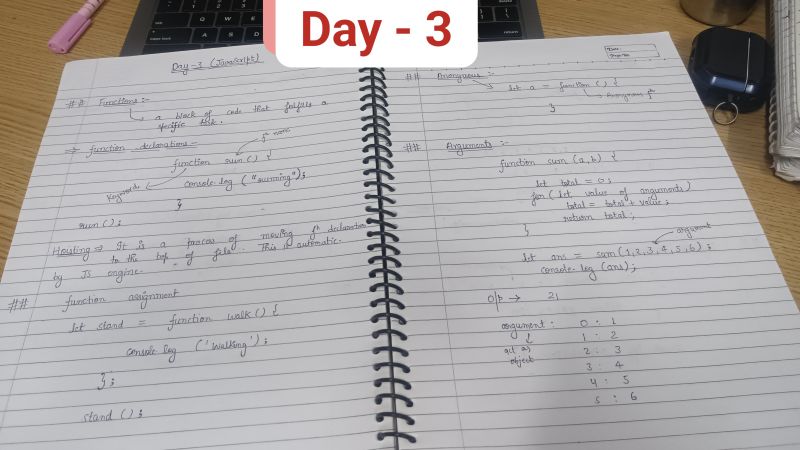 Day - 3
Day-3 (JavaScript)
## Functions :-
↳ a block of code that fulfills a
specific task.
⇒ function declarations :-
fⁿ name
function run () {
Keywords
console.log ("running");
}
run ();
Hoisting ⇒ It is a process of moving fⁿ declaration
to the top of file. This is automatic.
by JS engine.
## function assignment
let stand = function walk () {
console.log ('Walking');
};
stand ();
Date:
Page No:
## Anonymous :-
let a = function () {
↳ Anonymous fⁿ
}
## Arguments :-
function sum (a,b) {
let total = 0;
for (let value of arguments)
total = total + value;
return total;
}
argument
let ans = sum (1,2,3,4,5,6);
console.log (ans);
o/p → 21
argument : 0 : 1
↓ 1 : 2
act as 2 : 3
object 3 : 4
4 : 5
5 : 6